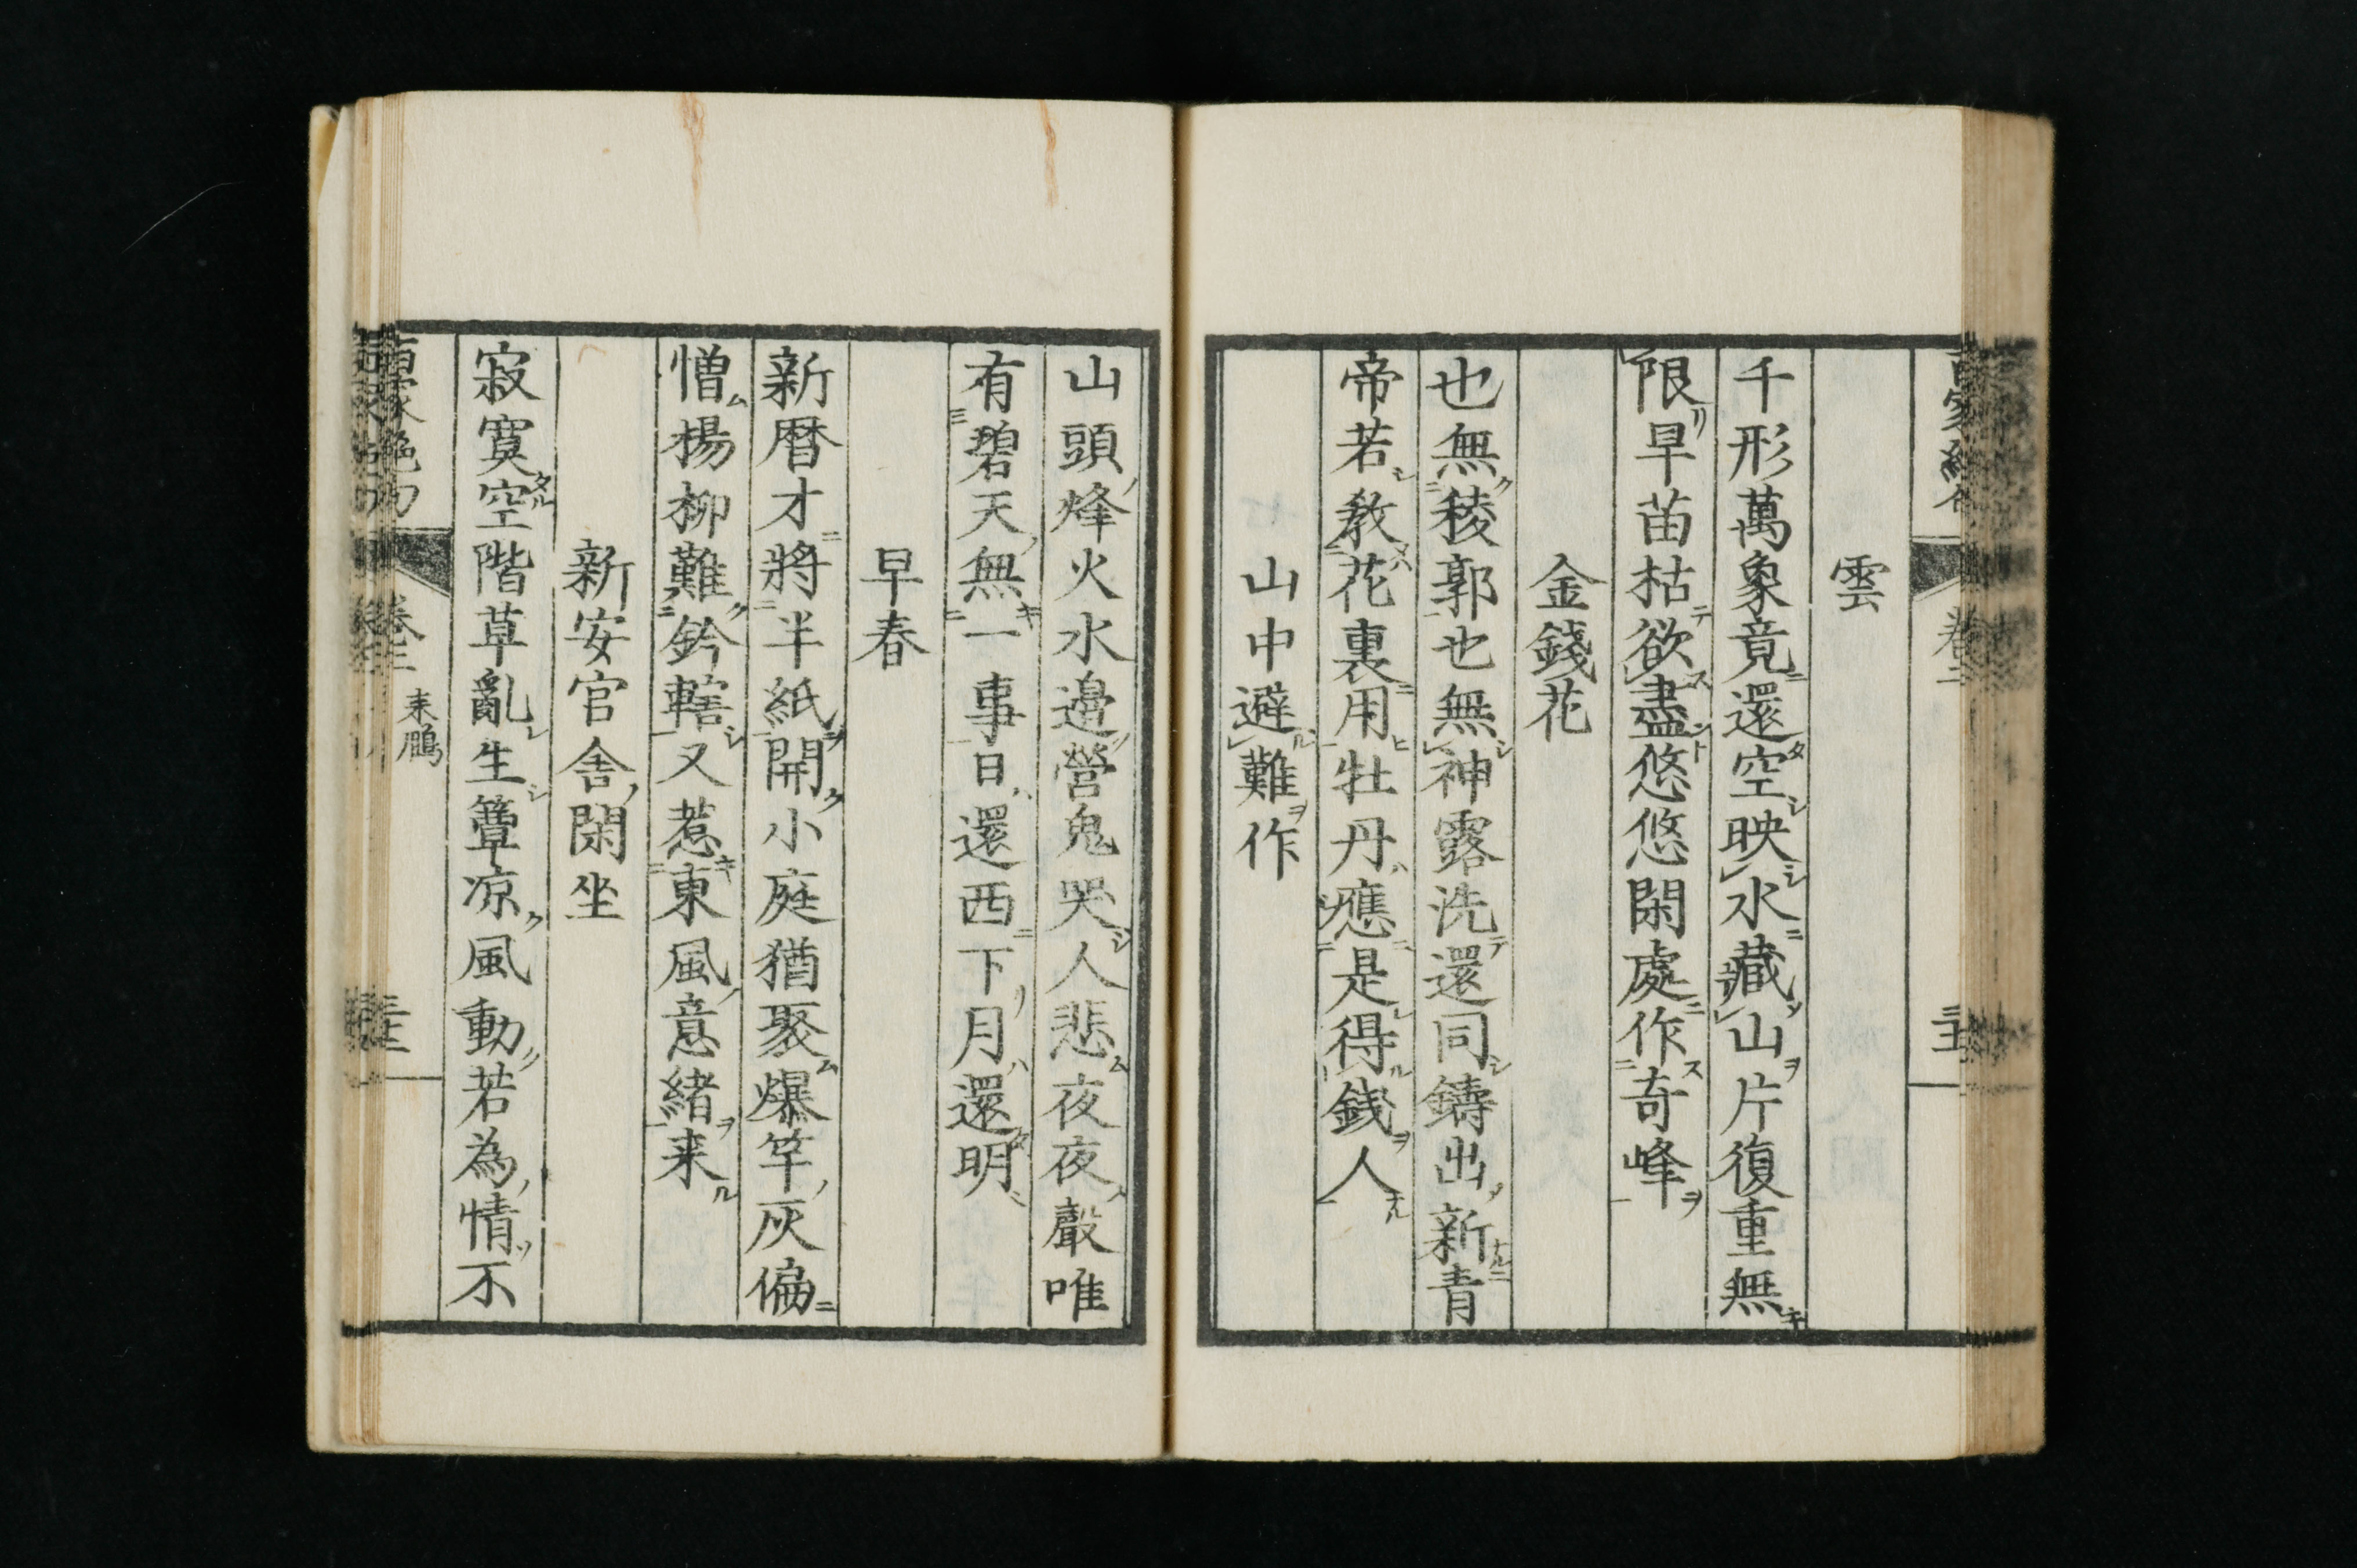 雲
千形萬象竟還空映水藏山片復重無
限旱苗枯欲盡悠悠閑處作奇峰
金錢花
也無稜郭也無神露洗還同鑄出新青
帝若教花裏用牡丹應是得錢人
山中避難作
山頭烽火水邊營鬼哭人悲夜夜聲唯
有碧天無一事日還西下月還明
早春
新暦才將半紙開小庭猶聚爆竿灰偏
憎楊柳難鈐轄又惹東風意緒来
新安官舍閑坐
寂寞空階草亂生簟凉風動若為情不
来鵬